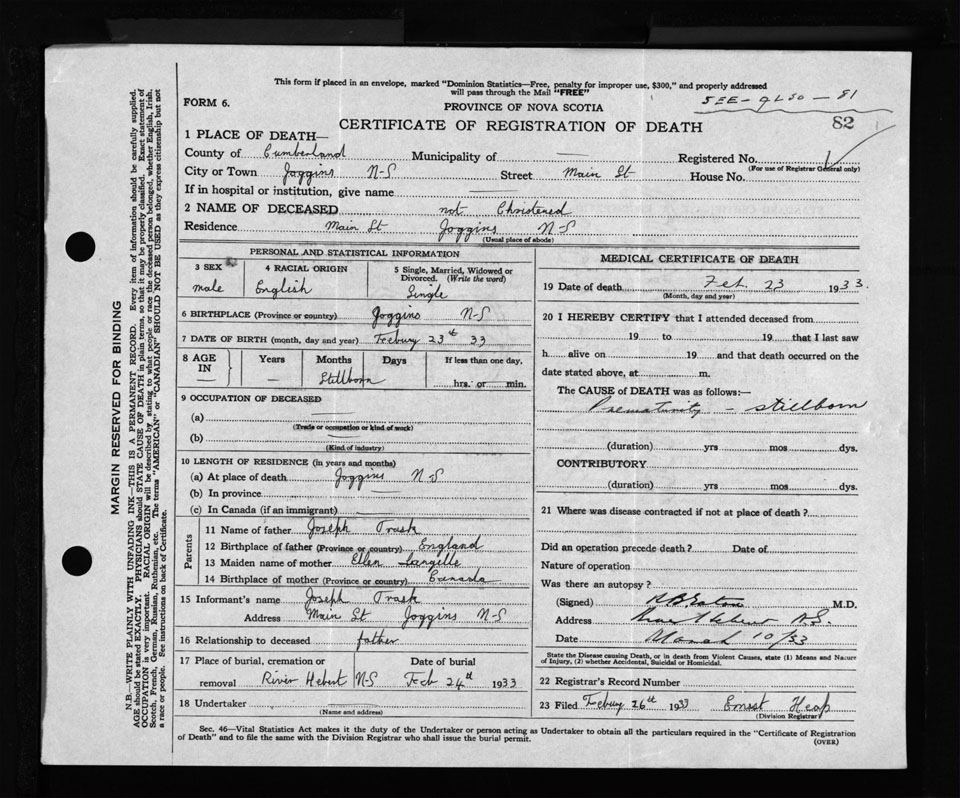 This form if placed in an envelope, marked "Dominion Statistics—Free, penalty for improper use, $300," and properly addressed
will pass through the Mail "FREE"
FORM 6.
PROVINCE OF NOVA SCOTIA
SEE - 9LSO - 81
CERTIFICATE OF REGISTRATION OF DEATH
82
1 PLACE OF DEATH—
County of Cumberland Municipality of — Registered No.
(For use of Registrar General only)
City or Town Joggins N-S Street Main St House No.
If in hospital or institution, give name —
2 NAME OF DECEASED not Christened
Residence Main St Joggins N-S
(Usual place of abode)
PERSONAL AND STATISTICAL INFORMATION
3 SEX 4 RACIAL ORIGIN 5 Single, Married, Widowed or
Divorced. (Write the word)
male English Single
6 BIRTHPLACE (Province or country) Joggins N-S
7 DATE OF BIRTH (month, day and year) Febury 23th 33
8 AGE IN Years Months Days If less than one day,
— — Stillborn hrs. or min.
9 OCCUPATION OF DECEASED
(a) —
(Trade or occupation or kind of work)
(b) —
(Kind of industry)
10 LENGTH OF RESIDENCE (in years and months)
(a) At place of death Joggins N-S
(b) In province —
(c) In Canada (if an immigrant) —
Parents
11 Name of father Joseph Trask
12 Birthplace of father (Province or country) England
13 Maiden name of mother Ellen Langille
14 Birthplace of mother (Province or country) Canada
15 Informant's name Joseph Trask
Address Main St. Joggins N-S
16 Relationship to deceased father
17 Place of burial, cremation or Date of burial
removal River Hebert N-S Feb 24th 1933
18 Undertaker
(Name and address)
MEDICAL CERTIFICATE OF DEATH
19 Date of death Feb. 23 1933.
(Month, day and year)
20 I HEREBY CERTIFY that I attended deceased from
19 to 19 that I last saw
h alive on 19 and that death occurred on the
date stated above, at m.
The CAUSE of DEATH was as follows:—
Prematurity - stillborn
(duration) yrs mos dys.
CONTRIBUTORY
(duration) yrs mos dys.
21 Where was disease contracted if not at place of death?
Did an operation precede death? Date of
Nature of operation
Was there an autopsy?
(Signed) M.D.
Address N.S.
Date March 10/33
State the Disease causing Death, or in death from Violent Causes, state (1) Means and Nature
of Injury, (2) whether Accidental, Suicidal or Homicidal.
22 Registrar's Record Number
23 Filed Febury 26th 1933 Ernest Heap
(Division Registrar)
Sec. 46—Vital Statistics Act makes it the duty of the Undertaker or person acting as Undertaker to obtain all the particulars required in the "Certificate of Registration
of Death" and to file the same with the Division Registrar who shall issue the burial permit.
(OVER)
MARGIN RESERVED FOR BINDING
N.B.—WRITE PLAINLY WITH UNFADING INK—THIS IS A PERMANENT RECORD. Every item of information should be carefully supplied.
AGE should be stated EXACTLY. PHYSICIANS should STATE CAUSE OF DEATH in plain terms, so that it may be properly classified. Exact statement of
OCCUPATION is very important. RACIAL ORIGIN will be described by stating to what people or race the deceased person belonged, whether English, Irish,
Scotch, French, German, Russian, Ruthenian, etc. The terms "AMERICAN" or "CANADIAN" SHOULD NOT BE USED as they express citizenship but not
a race or people. See instructions on back of Certificate.